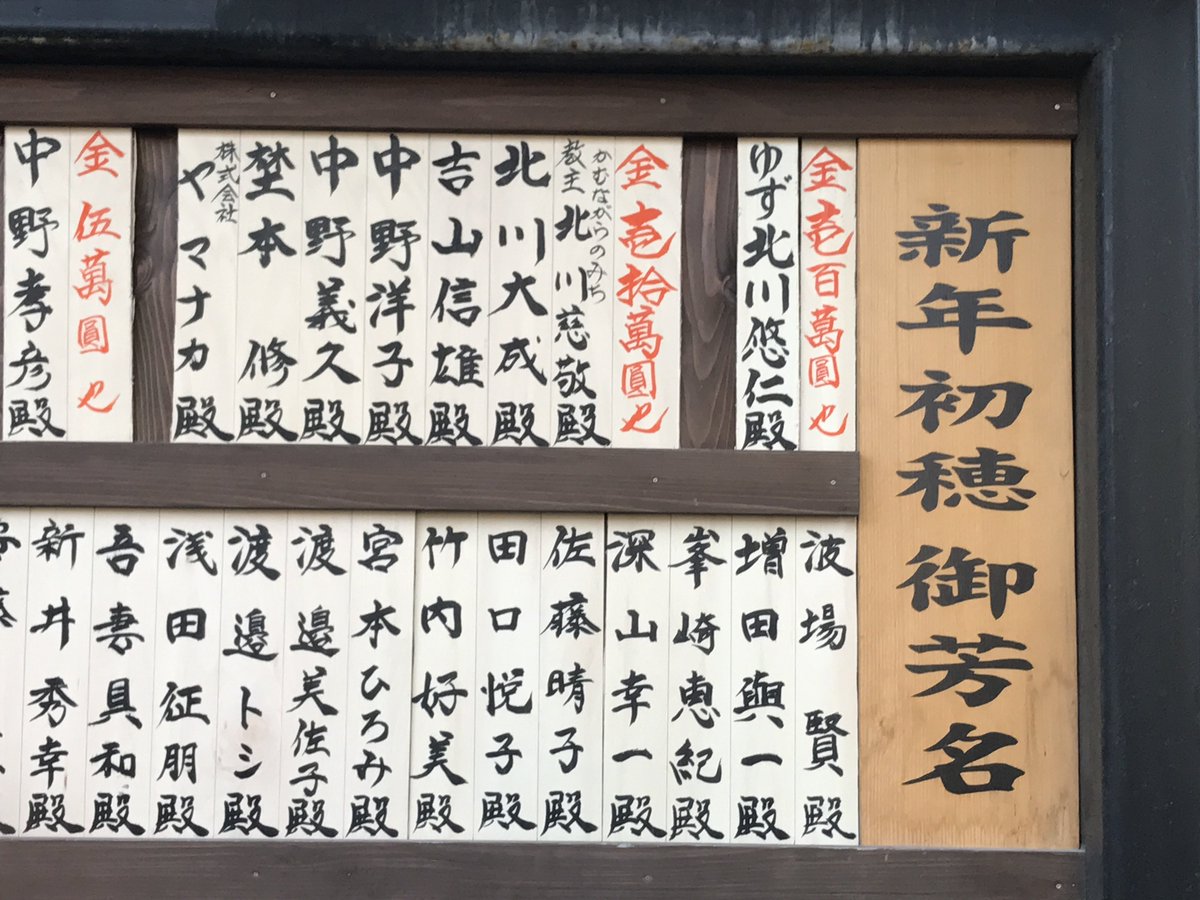 新年初穂御芳名
金壱百萬圓也
ゆず北川悠仁殿
金壱拾萬圓也
かむながらのみち
教主北川慈敬殿
北川大成殿
吉山信雄殿
中野洋子殿
中野義久殿
埜本修殿
株式会社
ヤマナカ殿
金伍萬圓也
中野孝彦殿
波場賢殿
増田與一殿
峯崎恵紀殿
深山幸一殿
佐藤晴子殿
田口悦子殿
竹内好美殿
宮本ひろみ殿
渡邉美佐子殿
渡邉トシ殿
浅田征朋殿
吾妻具和殿
新井秀幸殿